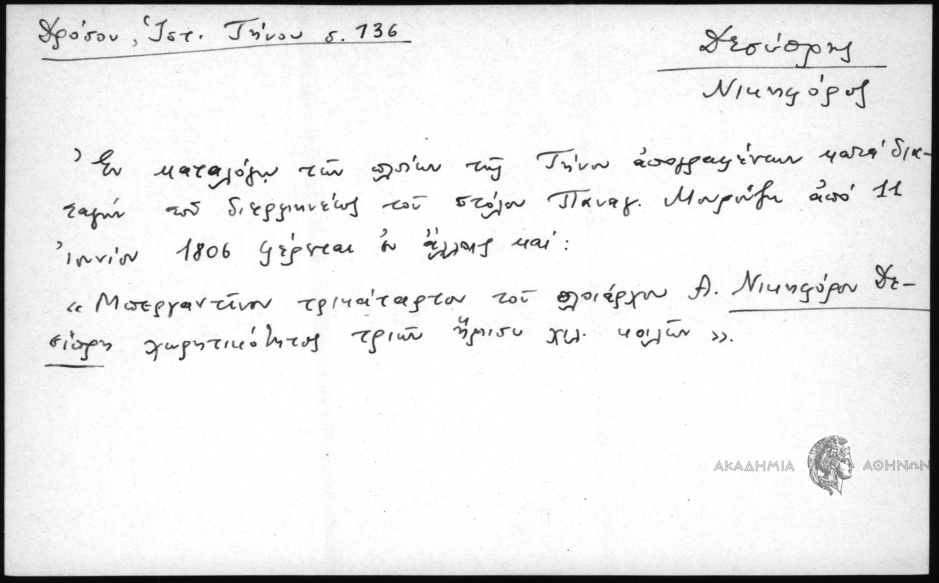 Δρόσου, Ἱστ. Τήνου σ. 136
Δεσύπρης
Νικηφόρος
Ἐν καταλόγῳ τῶν πλοίων τῆς Τήνου ἀπογραφέντων κατά δια-
ταγήν τοῦ διερμηνέως τοῦ στόλου Παναγ. Μουρούζη ἀπό 11
Ἰουνίου 1806 φέρεται ἐν ἄλλοις καί:
« Μπεργαντῖνον τρικάταρτον τοῦ πλοιάρχου Α. Νικηφόρου Δε-
σίπρη χωρητικότητος τριῶν ἥμισυ χιλ. κοιλῶν ».
ΑΚΑΔΗΜΙΑ ΑΘΗΝΩΝ